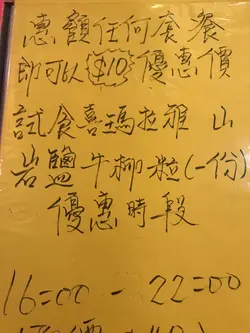 惠顧任何套餐
即可以$10優惠價
試食喜瑪拉雅山
岩鹽牛柳粒(一份)
優惠時段
16=00 - 22=00